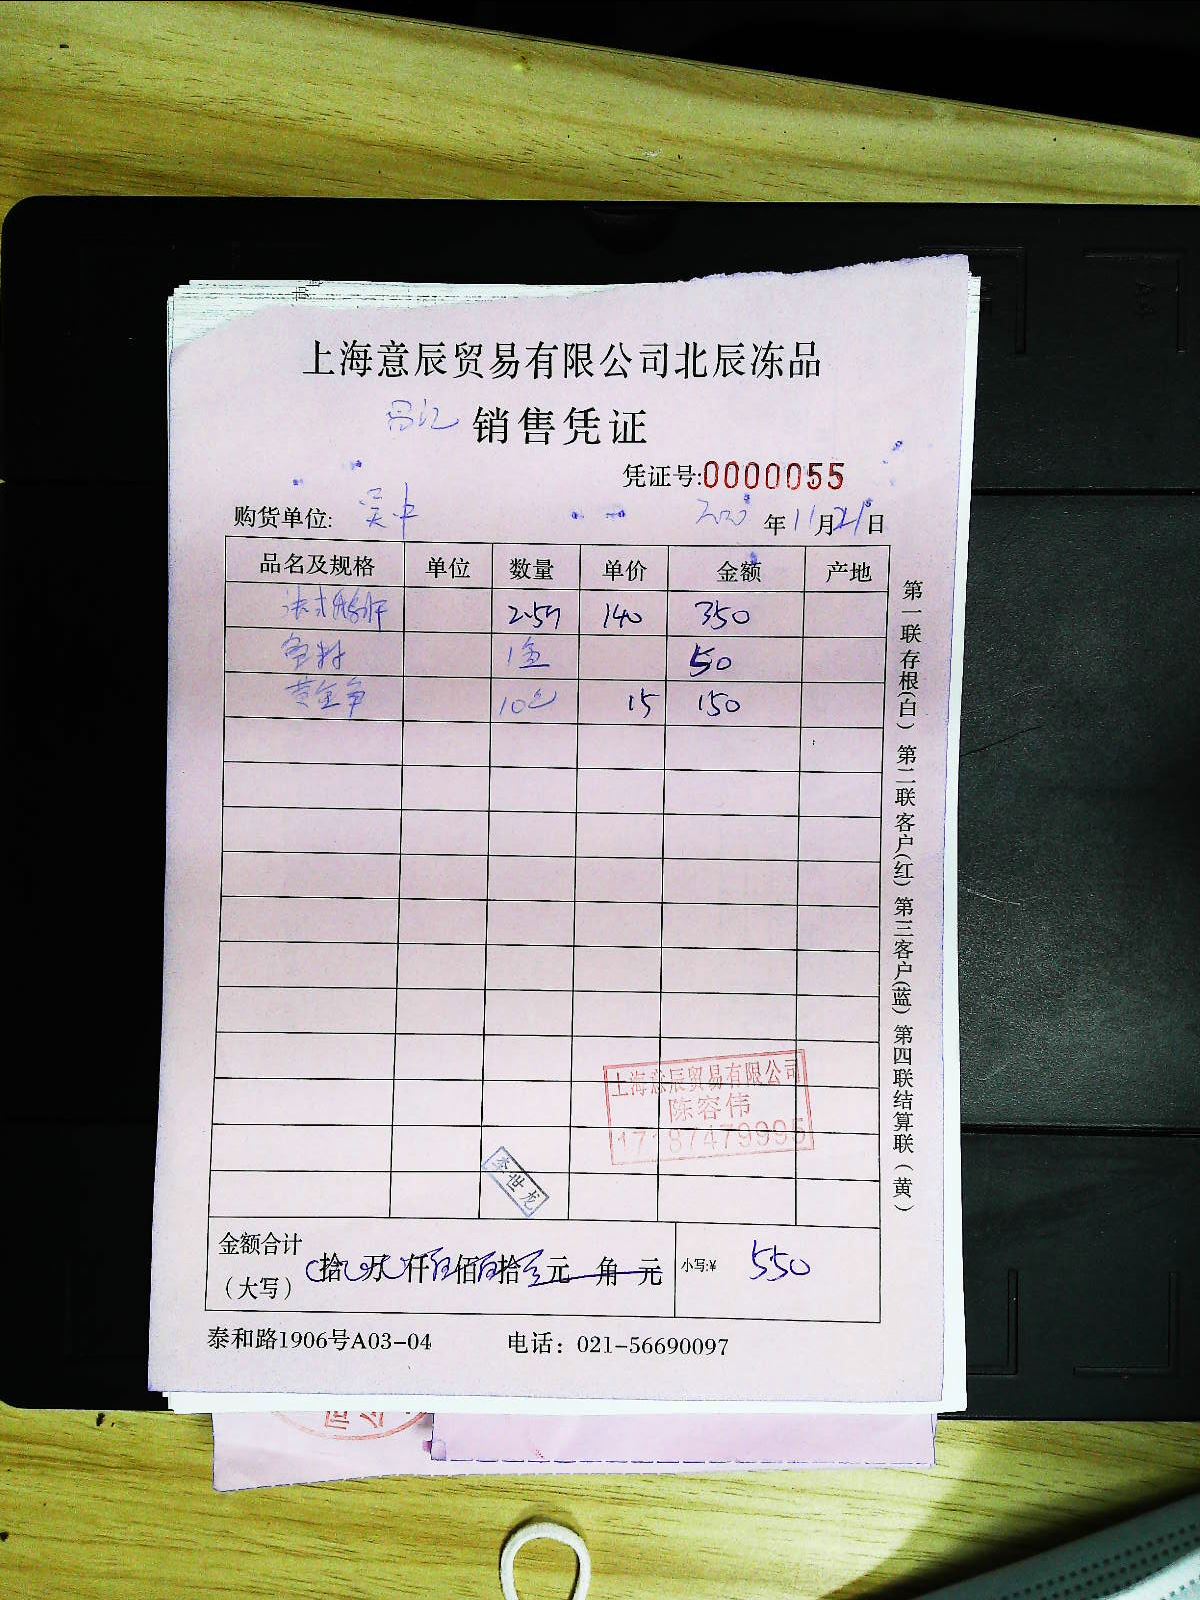 上海意辰贸易有限公司北辰冻品
销售凭证
凭证号:0000055
购货单位: 吴中 年11月21日
品名及规格 单位 数量 单价 金额 产地
法式 140 350
1盒 50
黄金 10包 15 150
上海意辰贸易有限公司
陈容伟
李世龙
金额合计
(大写) 拾 万 仟 佰 拾 元 角 元 小写:¥ 550
泰和路1906号A03-04 电话：021-56690097
第一联存根(白) 第二联客户(红) 第三客户(蓝) 第四联结算联(黄)